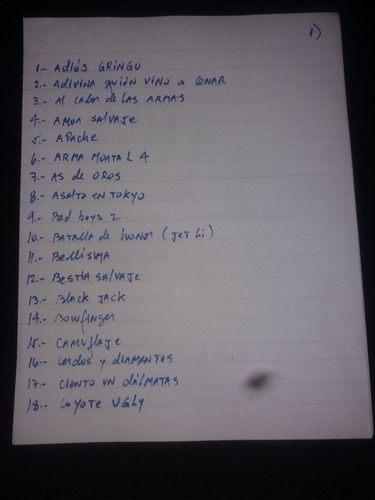 1)
1.- Adiós GRINGO
2.- Adivina quién vino a CENAR
3.- Al calor de LAS ARMAS
4.- AMOR SALVAJE
5.- APACHE
6.- ARMA MORTAL 4
7.- AS de OROS
8.- ASALTO EN TOKYO
9.- Bad boys 2
10.- BATALLA de honor (JET Li)
11.- BELLISIMA
12.- BESTIA SALVAJE
13.- Black JACK
14.- Bowfinger
15.- CAMUFLAJE
16.- Cerdos y diAMANTES
17.- CIENTO UN dÁLMATAS
18.- COYOTE UGLY